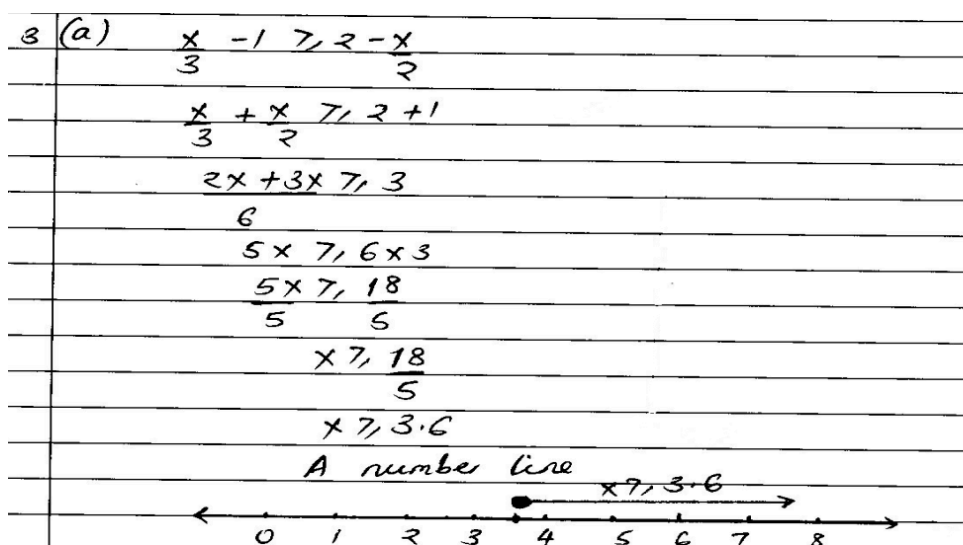 3 (a) x/3 - 1 ⩾ 2 - x/2
x/3 + x/2 ⩾ 2 + 1
(2x + 3x)/6 ⩾ 3
5x ⩾ 6 x 3
5x/5 ⩾ 18/5
x ⩾ 18/5
x ⩾ 3.6
A number line
x ⩾ 3.6
0 1 2 3 4 5 6 7 8